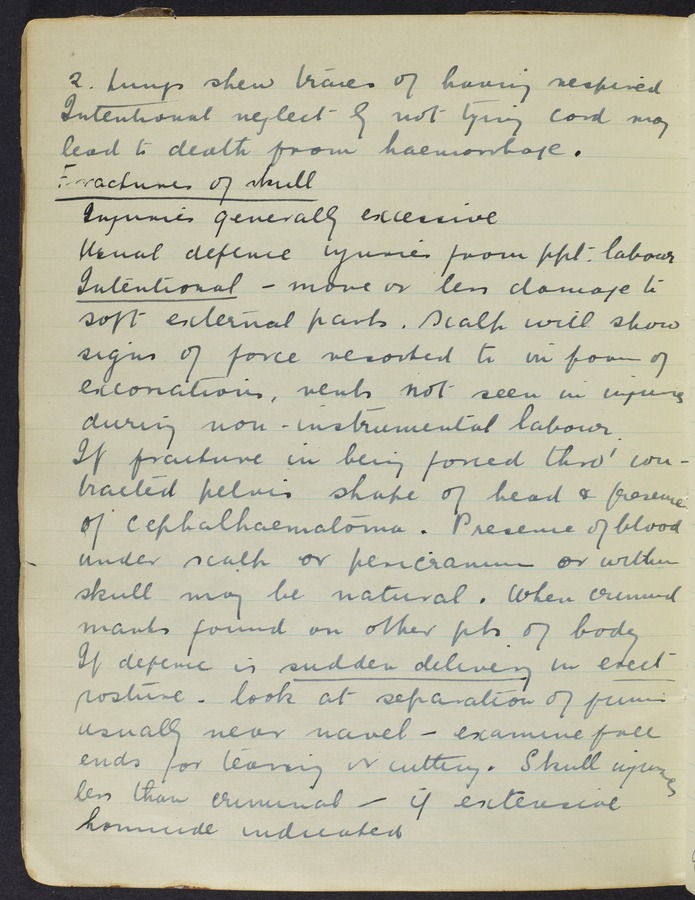 2. Lungs shew traces of having respired
Intentional neglect by not tying cord may
lead to death from haemorrhage.
Fractures of skull
Injuries generally excessive
Usual defence injuries from ppt. labour
Intentional - more or less damage to
soft external parts. Scalp will show
signs of force resorted to in form of
excoriations, rents not seen in injuries
during non-instrumental labour
If fracture in being forced thro' con-
tracted pelvis shape of head & presence
of cephalhaematoma. Presence of blood
under scalp or pericranium or within
skull may be natural. When criminal
marks found on other pts of body
If defence is sudden delivery in erect
posture - look at separation of funis
usually near navel - examine free
ends for tearing or cutting. Skull injuries
less than criminal - if extensive
homicide indicated